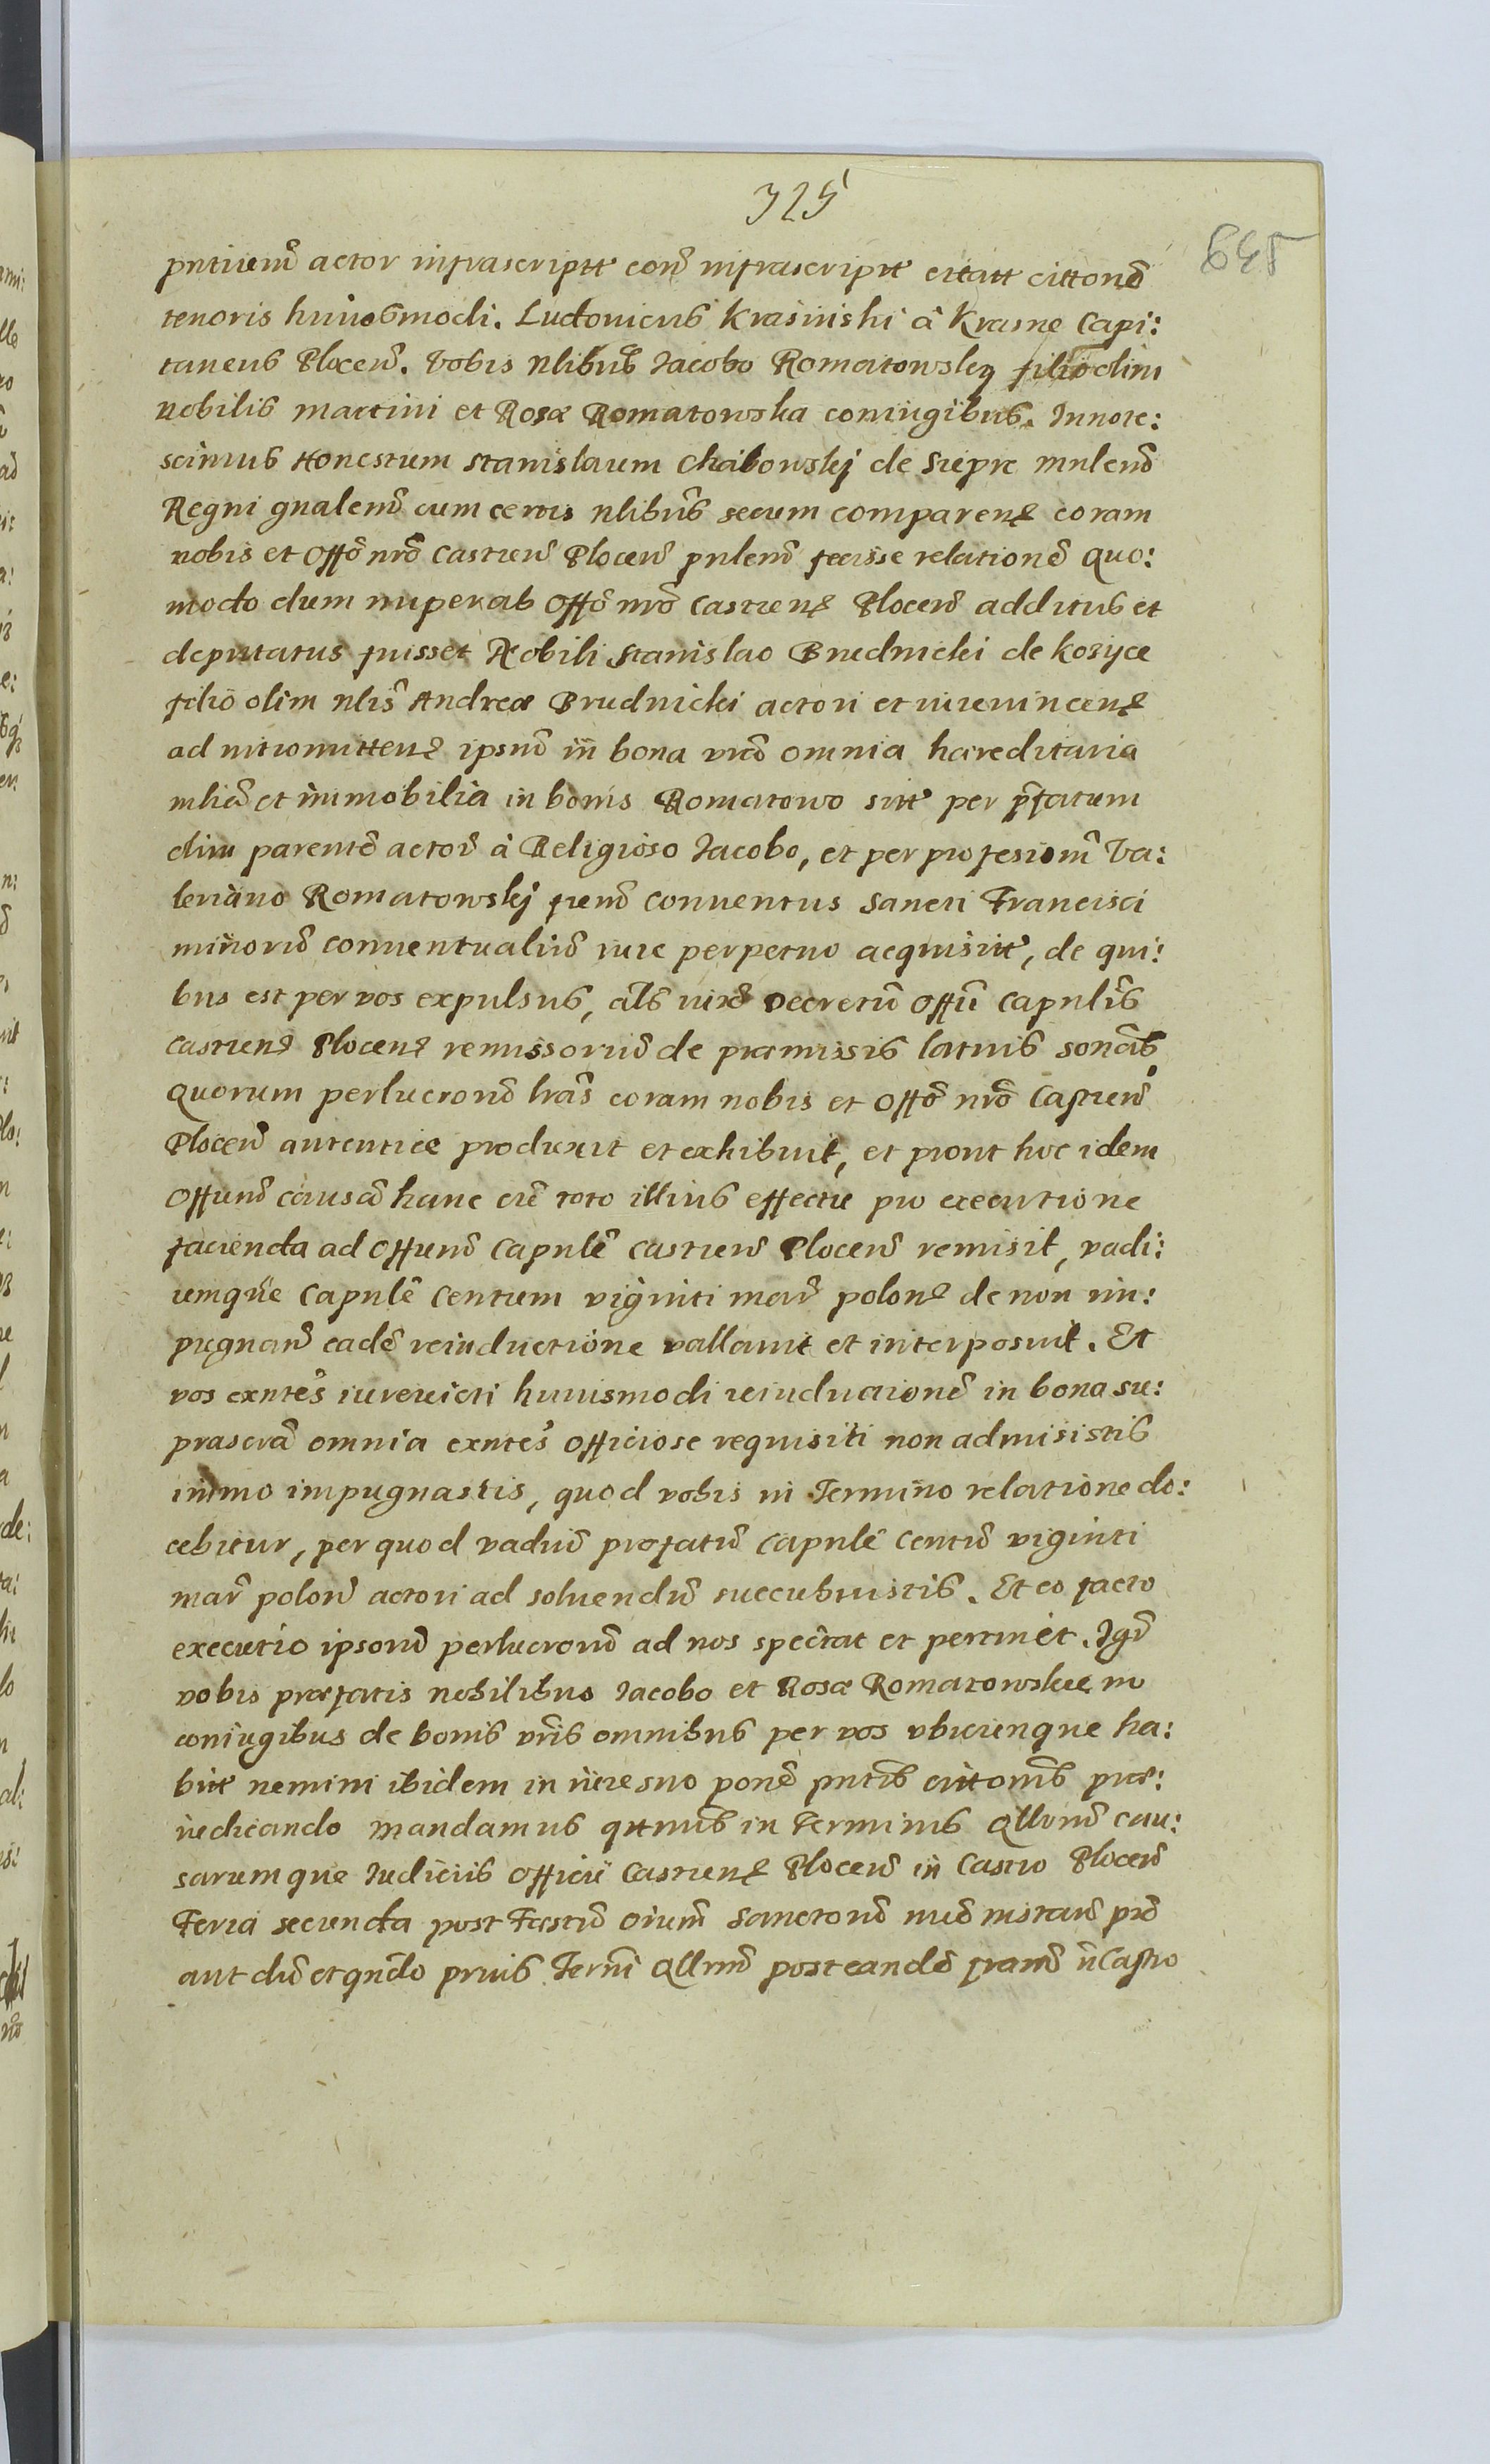 325
645
pntium̃ actor infrascriptt con̄ infrascriptt citatt cittonẽ
tenoris huiusmodi. Ludovicus Krasinski à Krasne Capi:
taneus Plocen̄. Vobis Nlibus̃ Jacobo Romatowsky filio olim
nobilis Martini et Rosæ Romatowska coniugibus. Innote:
scimus Honestum Stanislaum Chabowskij de Sieprc mnlem̃
Regni gnalem̃ cum certis nlibus̃ secum comparen̄ coram
nobis et Offõ nrõ Castren̄ Plocen̄ pnlem̃ fecisse relationẽ Quo:
modo dum nuper ab Offõ nrõ Castren̄ Plocen̄ additus et
deputatus fuisset Nobili Stanislao Brudnicki de Kozyce
filio olim nlis̃ Andreæ Brudnicki actori et iurevincen̄
ad intromitten̄ ipsum̃ in bona vrã omnia hæreditaria
mliã et immobilia in bonis Romatowo sitt per p̃fatum
olim parentẽ actor̃ à Religioso Jacobo, et per profesionẽ Va:
leriano Romatowskij frem̃ Conventus Sancti Francisci
minorũ conventualiũ iure perpetuo acquisitt, de qui:
bus est per vos expulsus, als̃ iuxã Decretũ Offii Capnlis̃
Castren̄ Plocen̄ remissoriũ de præmissis latius sonañs
Quorum perlucronũ lrãs coram nobis et Offõ nrõ Castren̄
Plocen̄ autentice produxit et exhibuit, et prout hoc idem
Offium̃ causam̃ hanc cũ toto illius effectu pro executione
facienda ad Offium̃ Capnlẽ Castren̄ Plocen̄ remisit, vadi:
umque Capnlẽ Centum viginti mar̃ polon̄ de non im:
pugnan̄ eadẽ reinductione vallavit et interposuit. Et
vos exntes̃ iurevicti huiusmodi reinductionẽ in bona su:
prascrã omnia exntes̃ officiose requisiti non admisistis
immo impugnastis, quod vobis in Termino relatione do:
cebitur, per quod vadiũ præfatũ Capnlẽ Centũ viginti
mar̃ polon̄ actori ad solvendũ succubuistis. Et eo facto
executio ipsorũ perlucronũ ad nos spectat et pertinet. Igr̃
vobis præfatis nobilibus Jacobo et Rosæ Romatowskie
coniugibus de bonis vrĩs omnibus per vos ubicunque ha:
bitt nemini ibidem in iure suo ponẽ pntib̃ cittonib̃ præ:
iudicando mandamus qtnus̃ in Terminis Qllonũ cau:
sarumque Judiciis Officii Castren̄ Plocen̄ in Castro Plocen̄
Feria secunda post Festũ oium̃ Sanctorũ nunc̃ instan̄ pro
aut dũ et qñdo prius Termi Qllrum̃ post eandẽ fram̃ in Castro